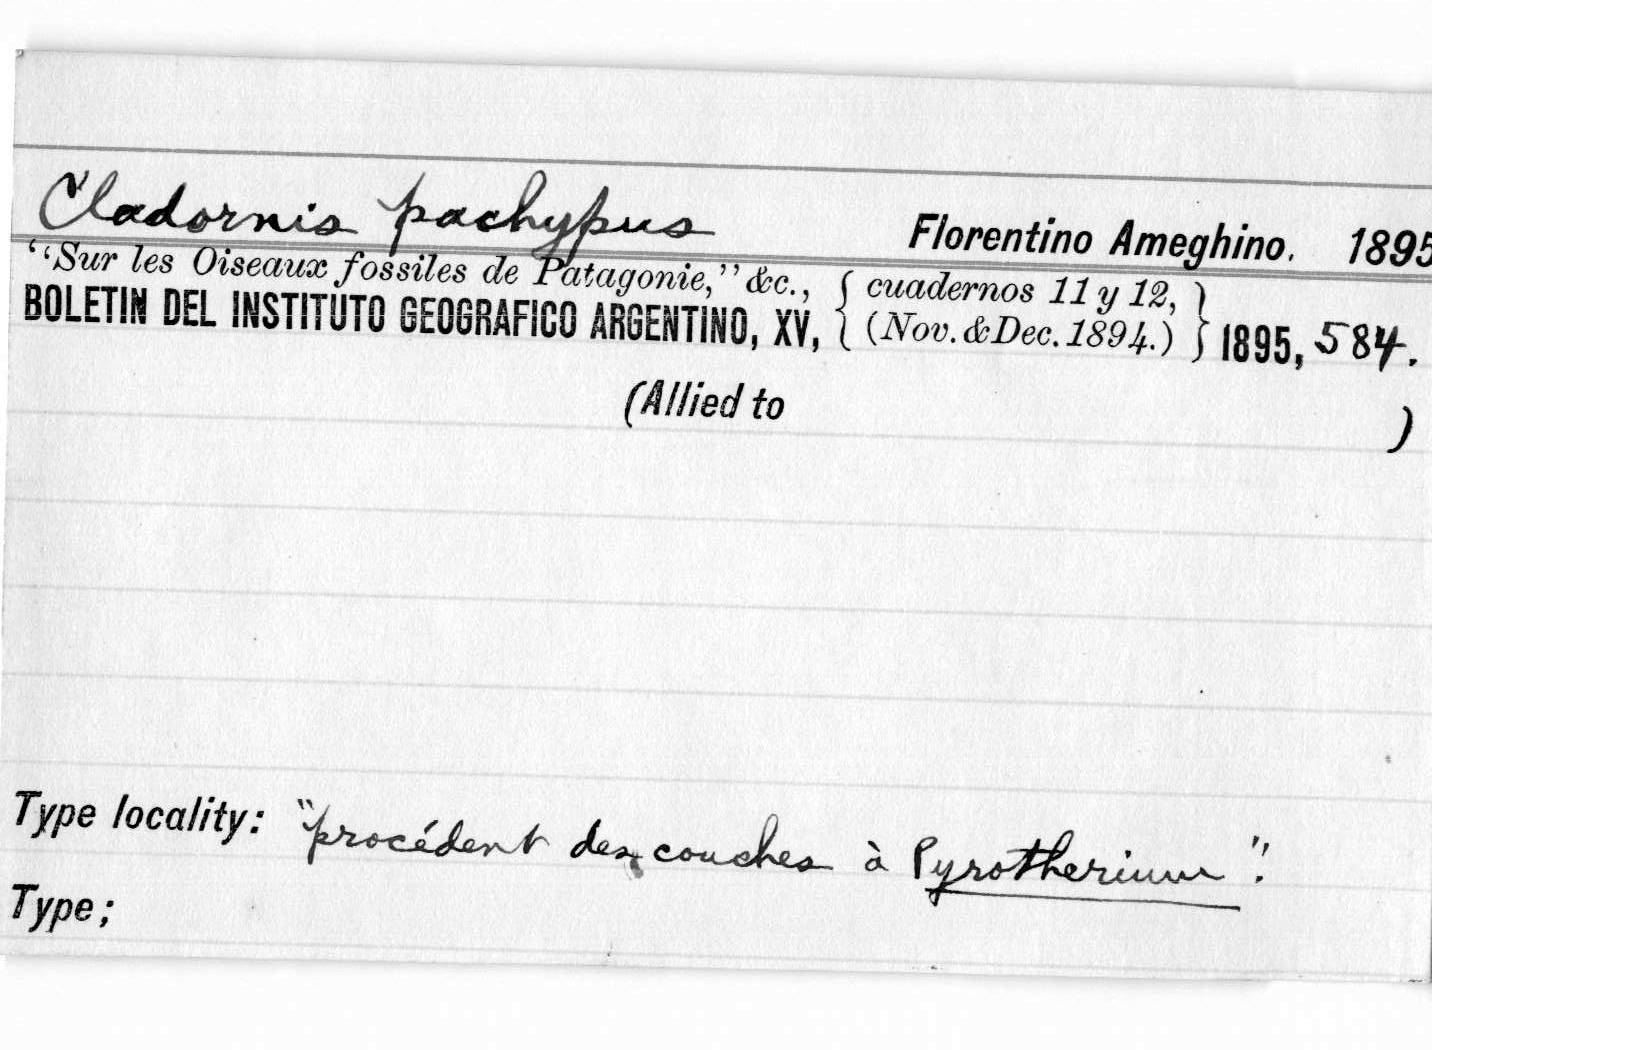 Cladornis pachypus Florentino Ameghino. 1895
“Sur les Oiseaux fossiles de Patagonie,” &c., { cuadernos 11 y 12, }
BOLETIN DEL INSTITUTO GEOGRAFICO ARGENTINO, XV, { (Nov. & Dec. 1894.) } 1895, 584.
(Allied to )
Type locality: "procédent des couches à Pyrotherium".
Type;